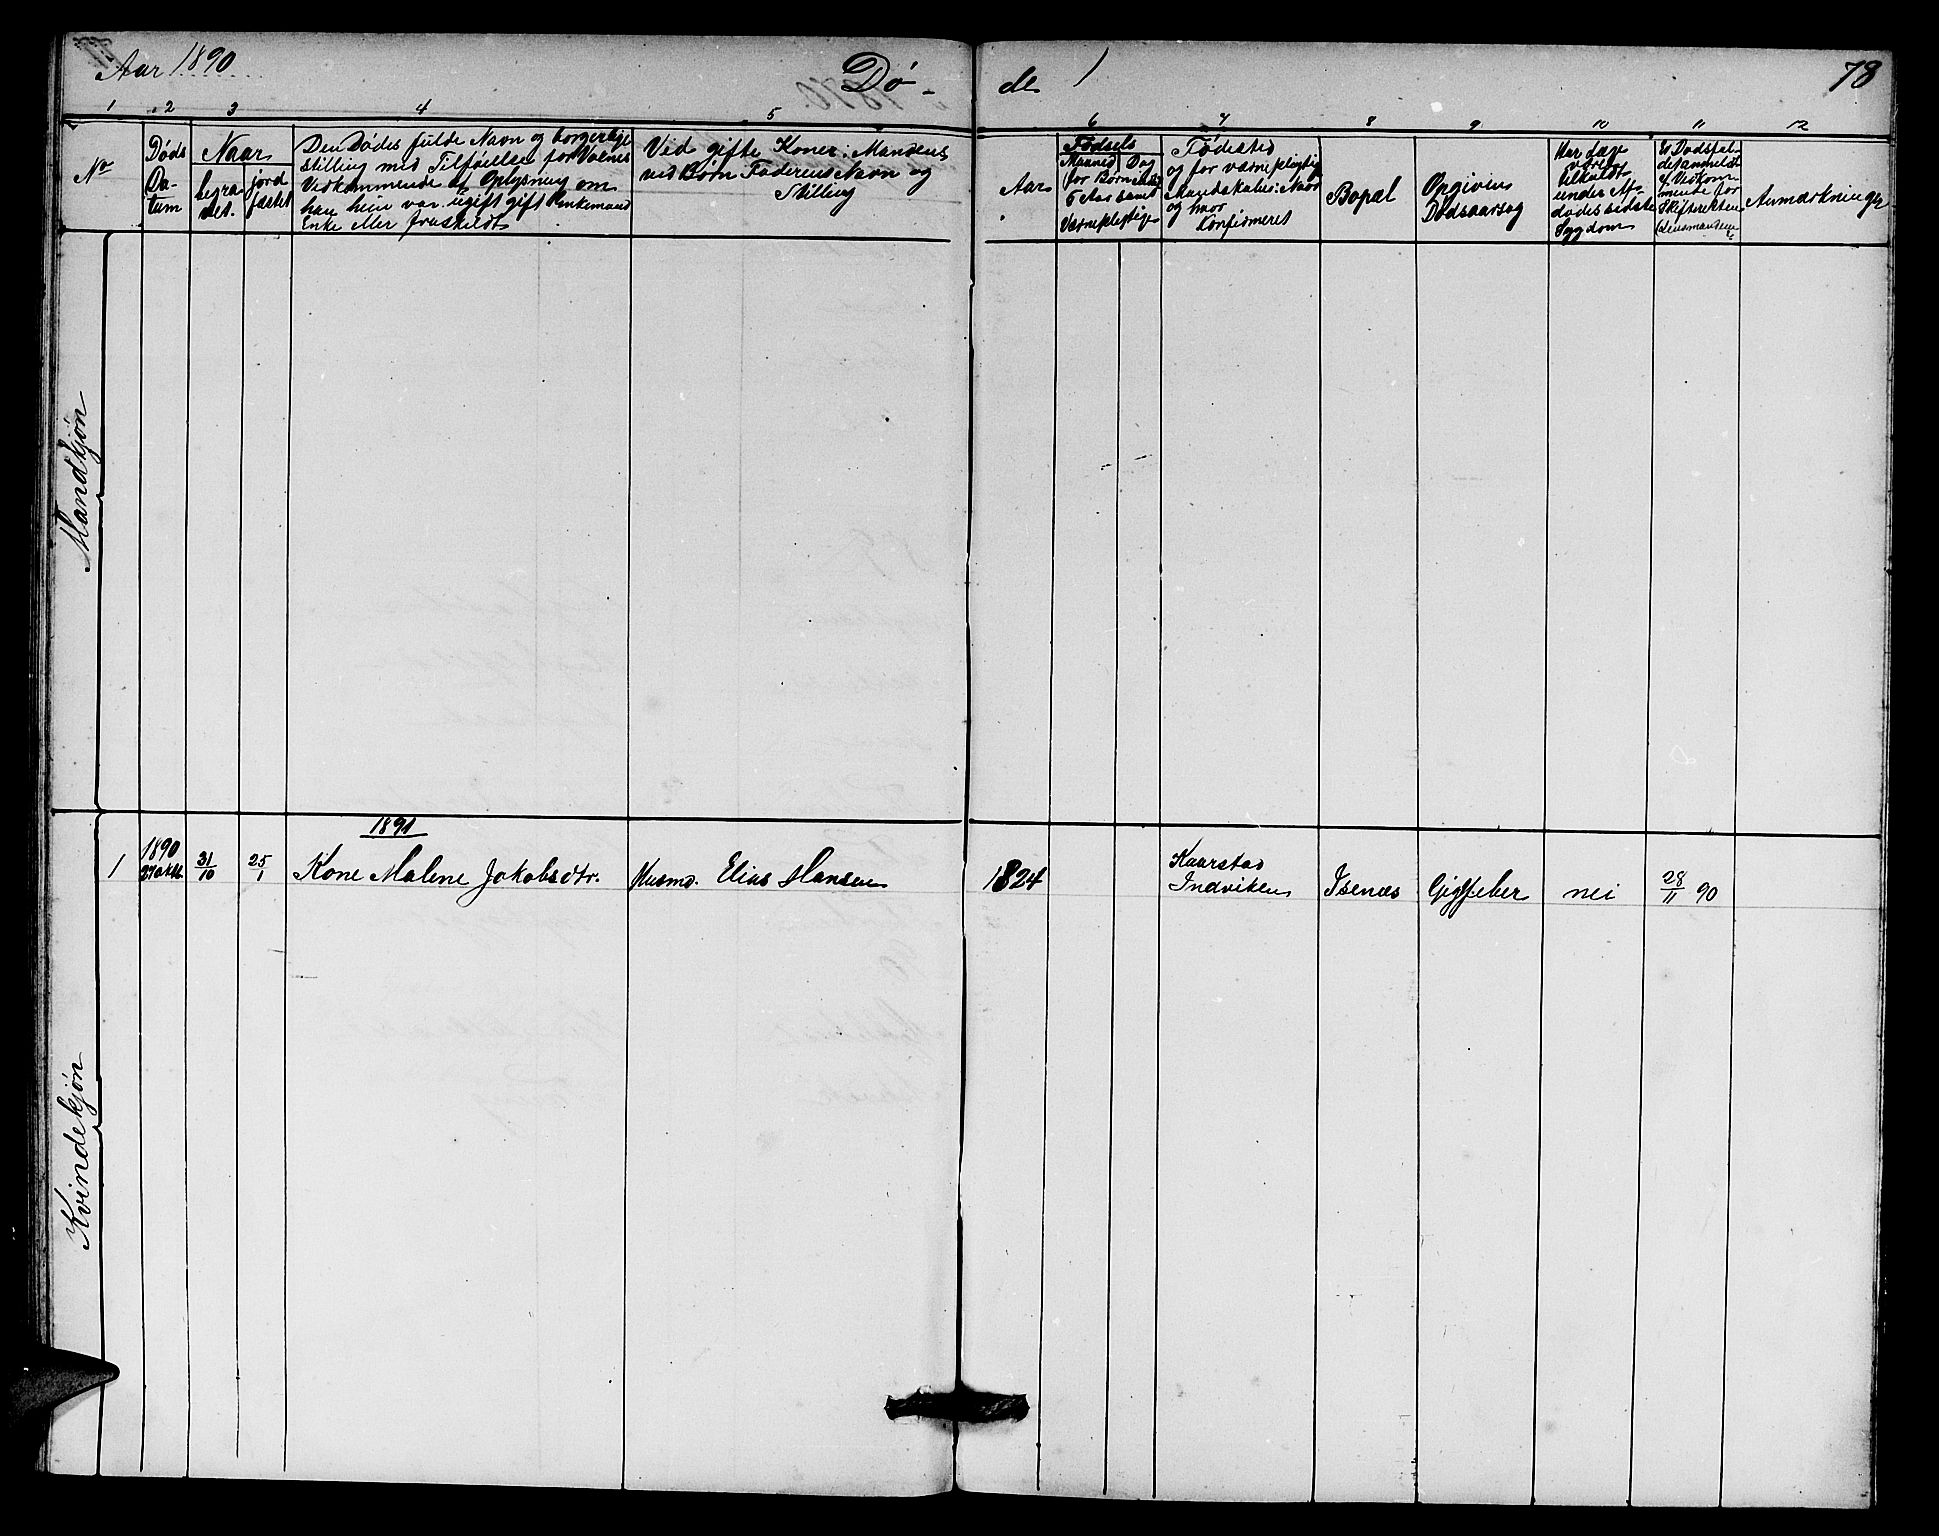 Aar 1890 Dø- de 78
1 2 3 4 5 6 7 8 9 10 11 12
No
Døds
Da-
tum
Naar
begra
det.
jord
fæstet
Den Dødes fulde Navn og borgerlige
Stilling med Tilføielse for Voxnes
Vedkommende af Oplysning om
han hun var ugift gift Enkemand
Enke eller fraskildt
Vid gifte Koner: Mandens
ved Børn Faderens Navn og
Stilling
Aar
Fødsels
Maaned Dag
for Børn under
5 Aar samt
Værnepligtige
Fødested
og for værnepligtig
Mandskaber: Naar
og hvor
Konfirmeret
Bopæl
Opgiven
Dødsaarsag
Har Læge
været
tilkaldt
under Af-
dødes sidste
Sygdom
Er Dødsfal-
det anmeldt
af Vedkom-
mende for
Skifteretten
(Lensmanden
Anmærkninger
Mandkjøn
Kvindekjøn
1891
1 1890 27 oktb. 31/10 25/1 Kone Malene Jakobsdtr. Husmd. Elias Hansen 1824 Kaarstad
Indviken Isenæs Gigtfeber nei 28/11 90